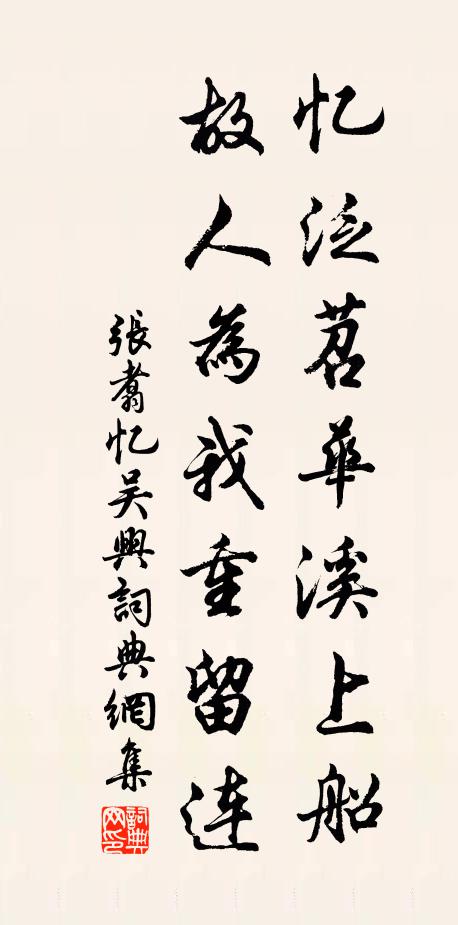 忆泛苕華溪上船
故人為我重留连
張翥忆吴興詞典網集
詞典网印